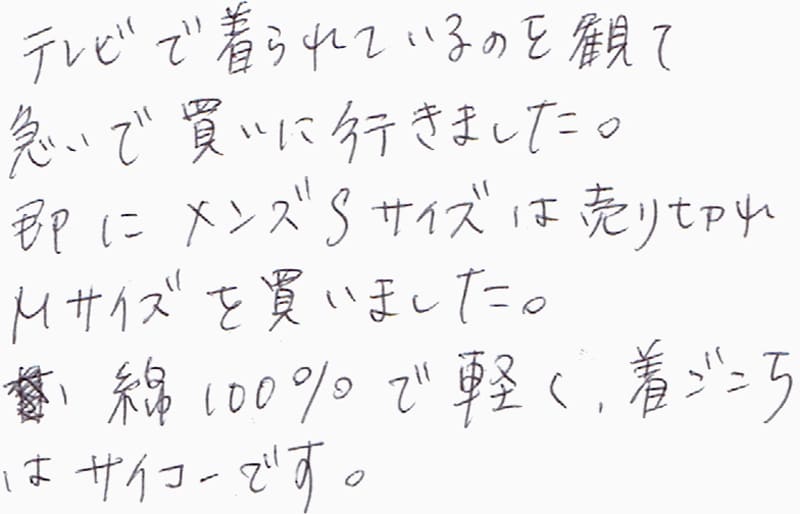 テレビで着られているのを観て
急いで買いに行きました。
即にメンズSサイズは売り切れ
Mサイズを買いました。
綿100%で軽く、着ごこち
はサイコーです。